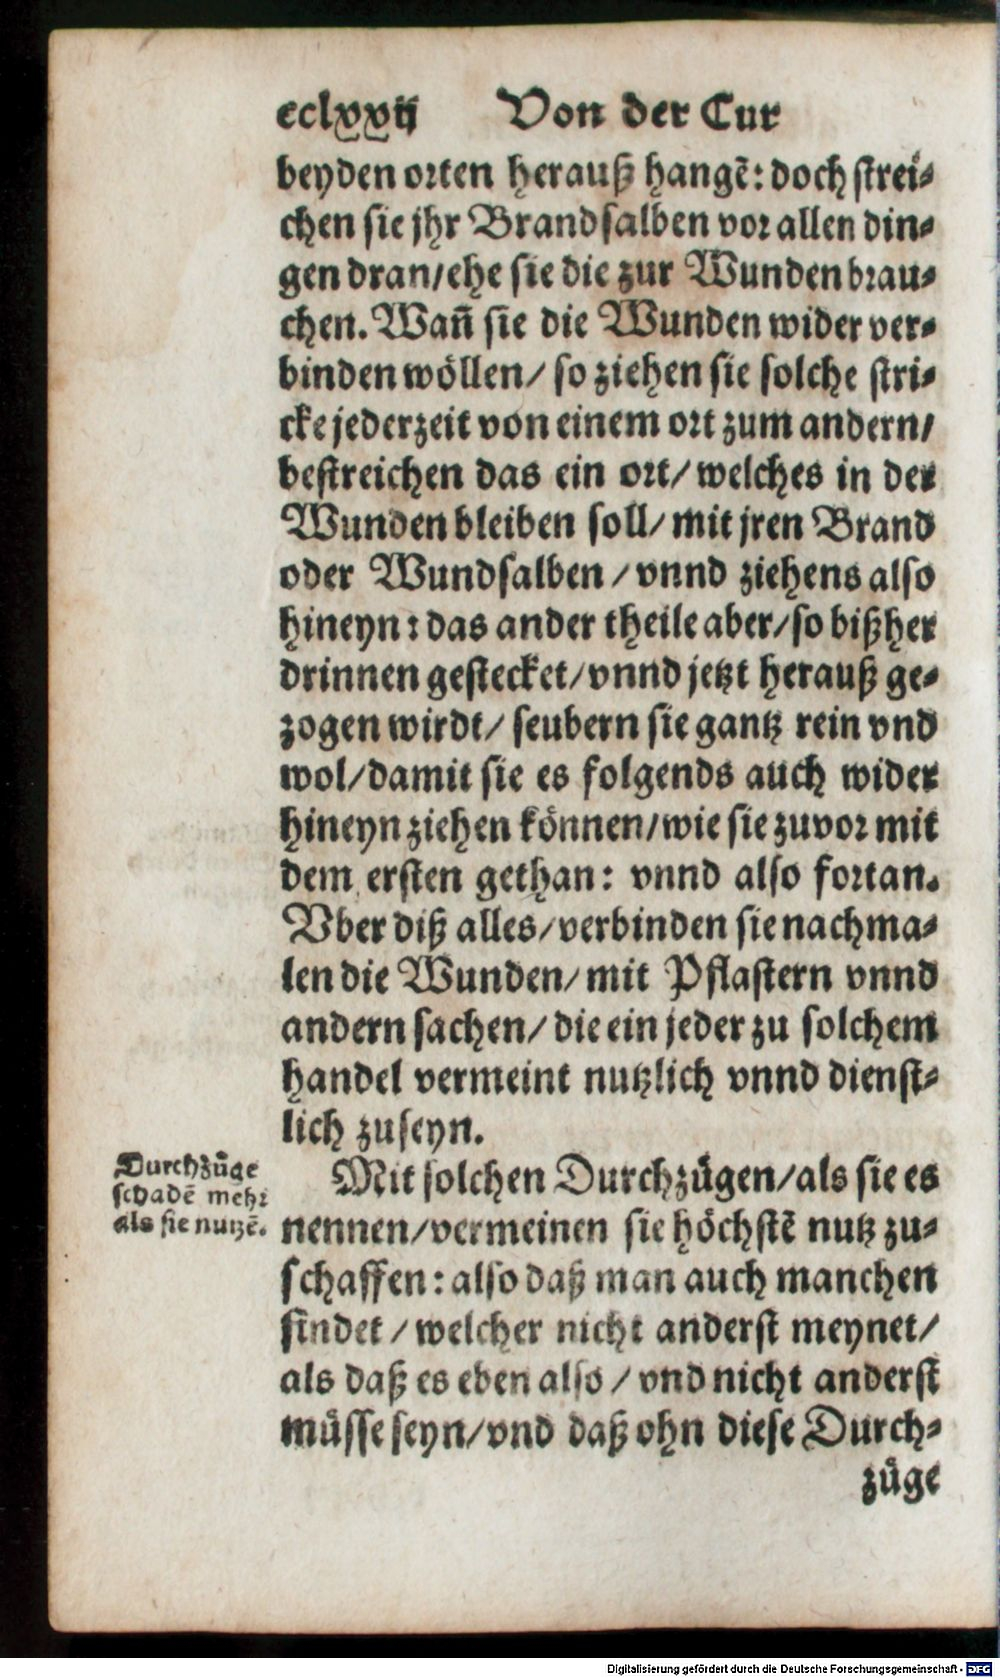 cclxxij Von der Cur
beyden orten herauß hangẽ: doch strei⸗
chen sie jhr Brandsalben vor allen din⸗
gen dran/ehe sie die zur Wunden brau⸗
chen. Wañ sie die Wunden wider ver⸗
binden wöllen/ so ziehen sie solche stri⸗
cke jederzeit von einem ort zum andern/
bestreichen das ein ort/ welches in der
Wunden bleiben soll/ mit jren Brand
oder Wundsalben / vnnd ziehens also
hineyn: das ander theile aber/so bißher
drinnen gestecket/vnnd jetzt herauß ge⸗
zogen wirdt/ seubern sie gantz rein vnd
wol/damit sie es folgends auch wider
hineyn ziehen können/wie sie zuvor mit
dem ersten gethan: vnnd also fortan.
Vber diß alles/verbinden sie nachma⸗
len die Wunden/mit Pflastern vnnd
andern sachen/ die ein jeder zu solchem
handel vermeint nutzlich vnnd dienst⸗
lich zuseyn.
Durchzůge
schadẽ mehr
als sie nutzẽ.
Mit solchen Durchzügen/als sie es
nennen/vermeinen sie höchstẽ nutz zu⸗
schaffen: also daß man auch manchen
findet / welcher nicht anderst meynet/
als daß es eben also / vnd nicht anderst
müsse seyn/vnd daß ohn diese Durch⸗
züge
Digitalisierung gefördert durch die Deutsche Forschungsgemeinschaft - DFG